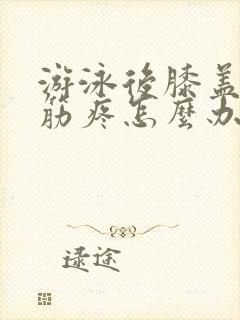 游泳後膝蓋
筋疼怎麼办
逯途